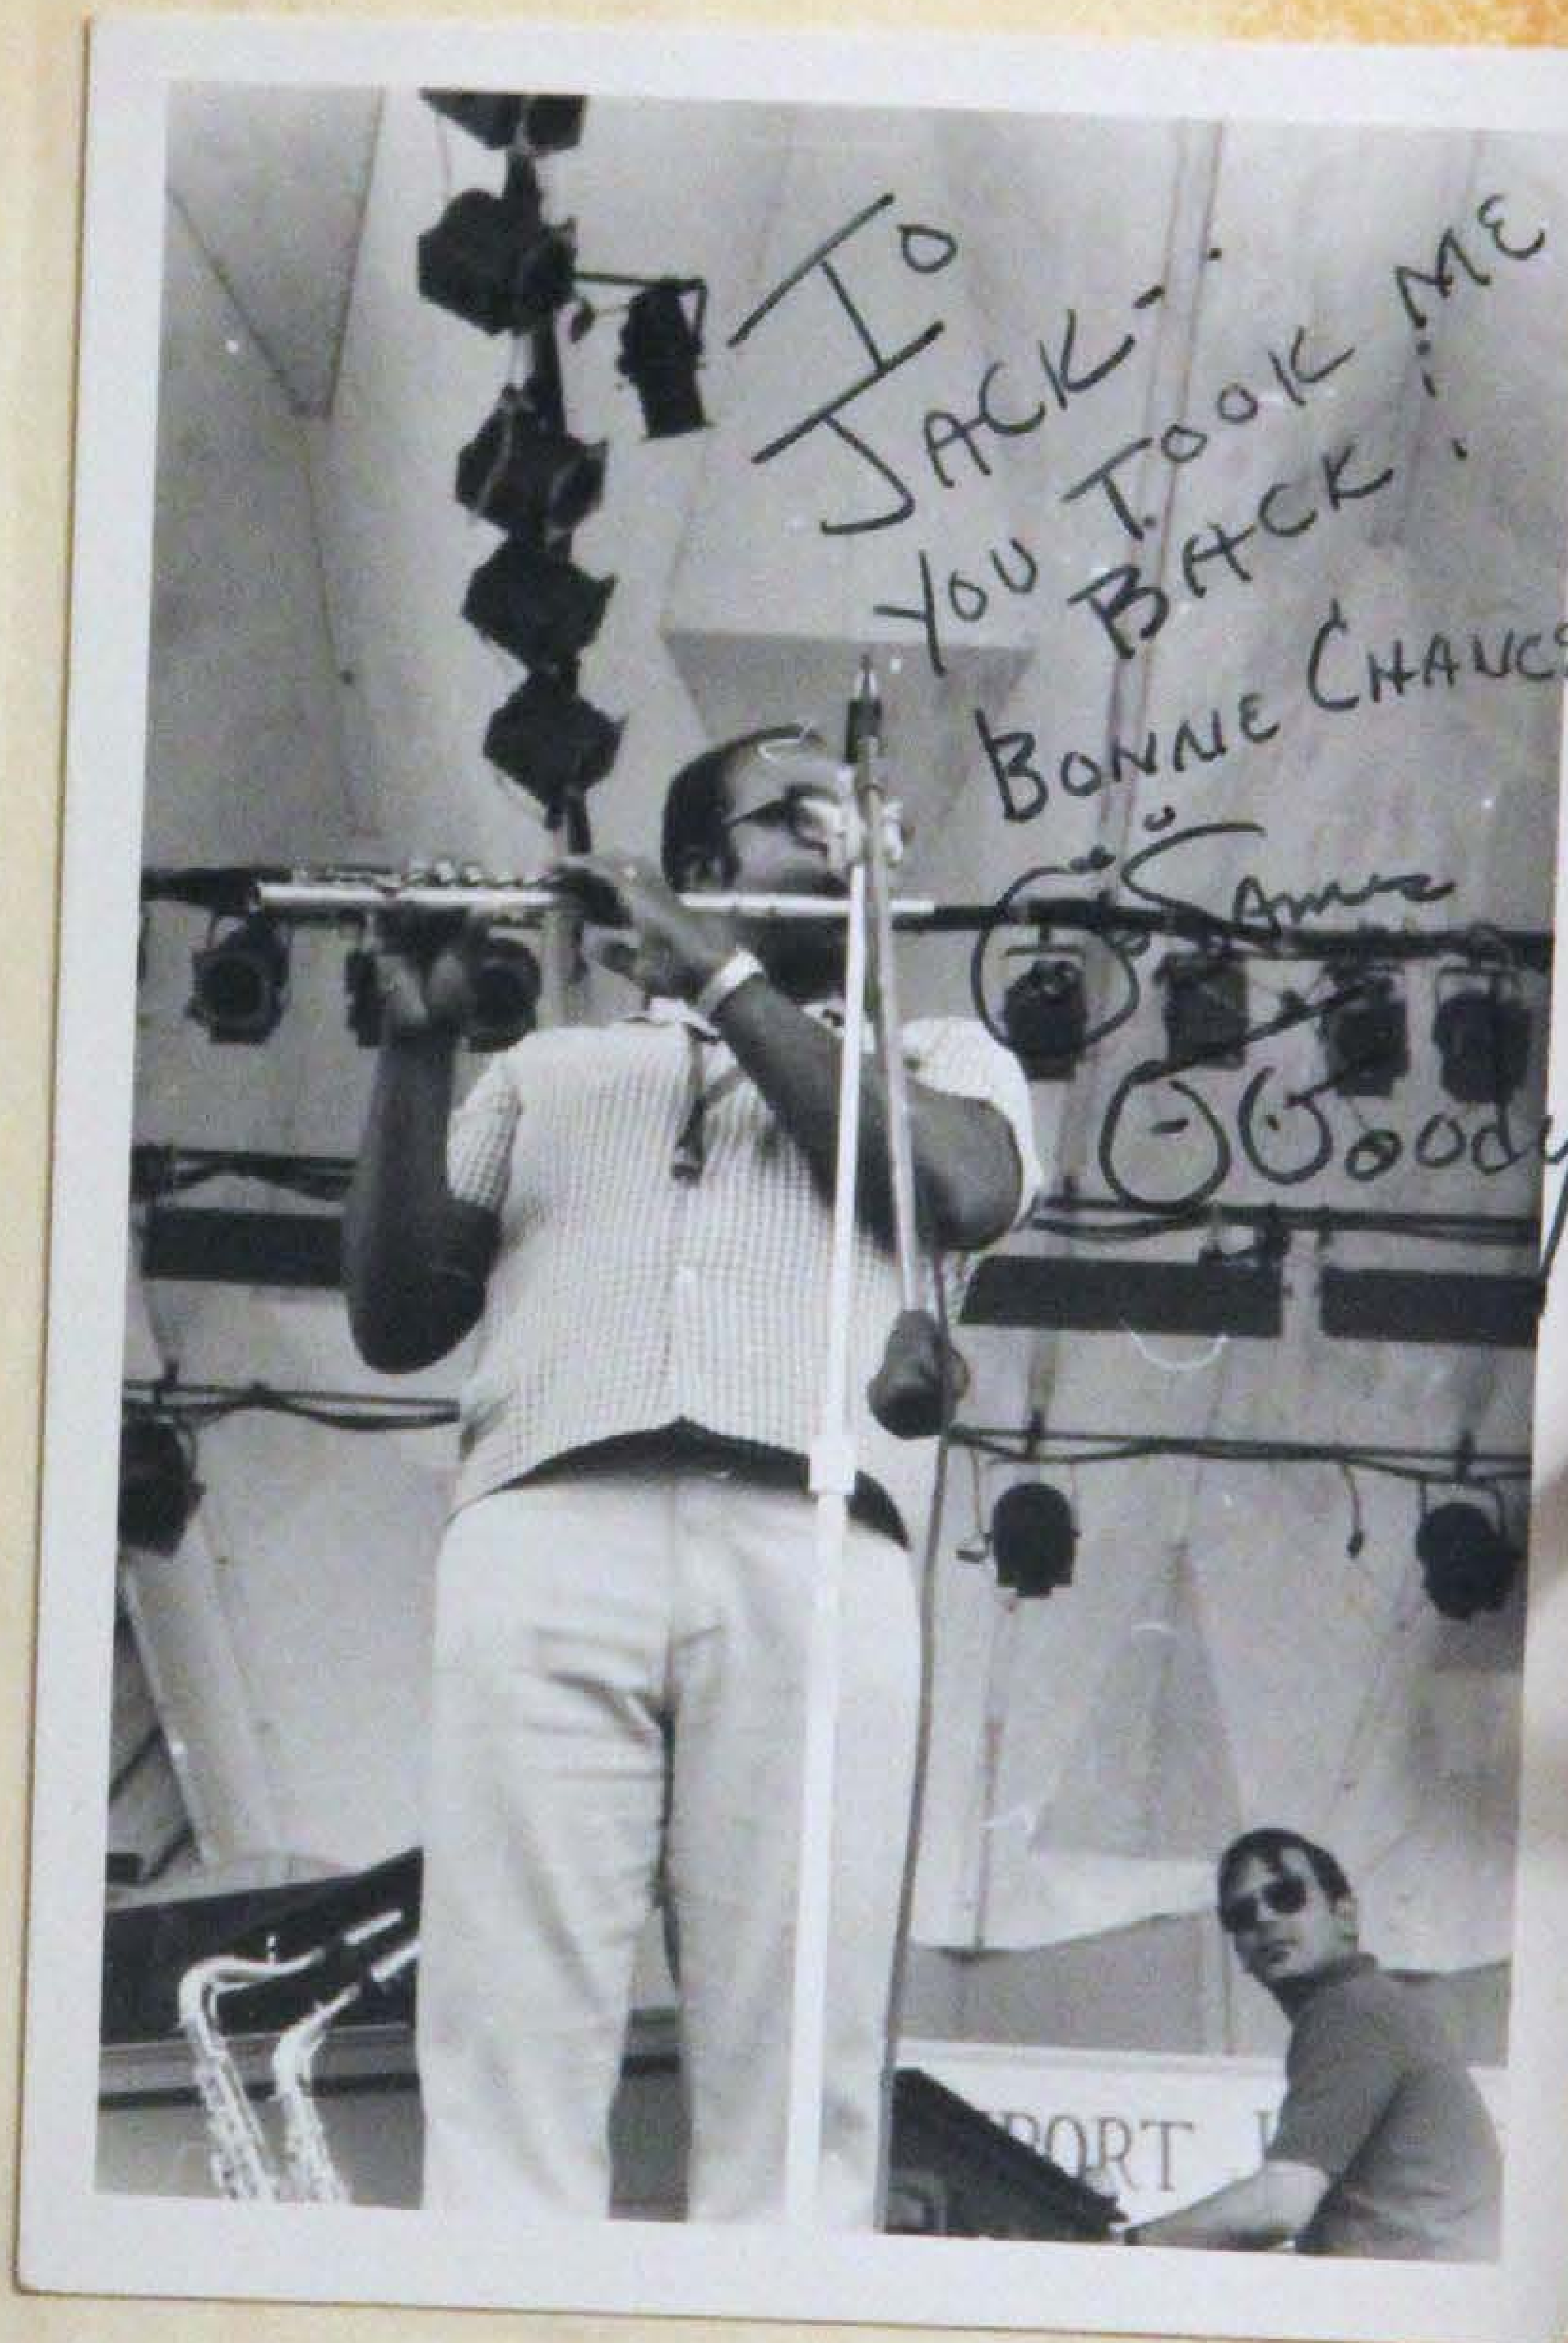 To
JACK-
YOU TOOK ME
BACK!
BONNE CHANCE
James
Moody
PORT